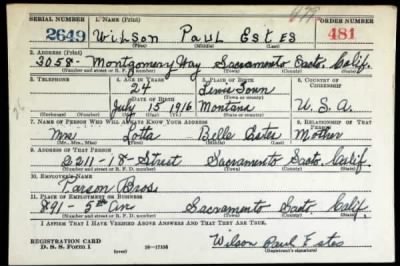 SERIAL NUMBER 1. NAME (Print) ORDER NUMBER
2649 Wilson Paul Estes 481
(First) (Middle) (Last)
2. ADDRESS (Print)
3058 - Montgomery Way Sacramento Sacto. Calif.
(Number and street or R. F. D. number) (Town) (County) (State)
3. TELEPHONE 4. AGE IN YEARS 5. PLACE OF BIRTH 6. COUNTRY OF CITIZENSHIP
24 Lewistown
DATE OF BIRTH (Town or county)
July 15 1916 Montana U.S.A.
(Exchange) (Number) (Mo.) (Day) (Yr.) (State or country)
7. NAME OF PERSON WHO WILL ALWAYS KNOW YOUR ADDRESS 8. RELATIONSHIP OF THAT PERSON
Mrs. Lotta Belle Estes Mother
(Mr., Mrs., Miss) (First) (Middle) (Last)
9. ADDRESS OF THAT PERSON
2211 - 18 - Street Sacramento Sacto. Calif.
(Number and street or R. F. D. number) (Town) (County) (State)
10. EMPLOYER'S NAME
Parson Bros.
11. PLACE OF EMPLOYMENT OR BUSINESS
891 - 5th Av. Sacramento Sact. Calif.
(Number and street or R. F. D. number) (Town) (County) (State)
I AFFIRM THAT I HAVE VERIFIED ABOVE ANSWERS AND THAT THEY ARE TRUE.
REGISTRATION CARD
D. S. S. FORM 1 (over) 16—17105 Wilson Paul Estes